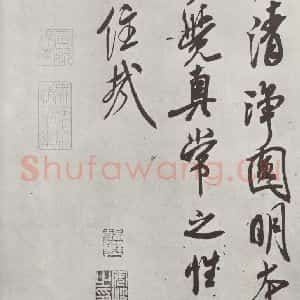 清淨圓明本
覺真常之性
住哉
Shufawang.cn